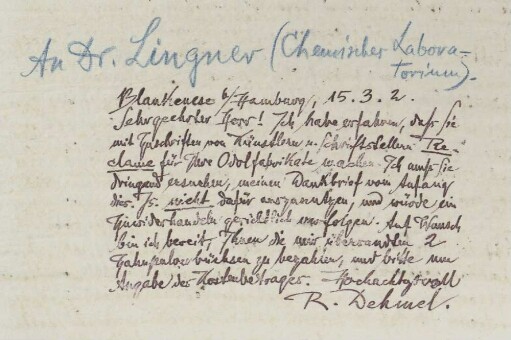 An Dr. Lingner (Chemischer Labora-
torium).
Blankenese b/Hamburg, 15. 3. 2.
Sehrgeehrter Herr! Ich habe erfahren, daß Sie
mit Zuschriften von Künstlern u. Schriftstellern Re-
clame für Ihre Odolfabrikate machen. Ich muß Sie
dringend ersuchen, meinen Dankbrief vom Anfang
dies. Js. nicht dafür auszunutzen, und würde ein
Zuwiderhandeln gerichtlich verfolgen. Auf Wunsch
bin ich bereit, Ihnen die mir übersandten 2
Zahnpulverbüchsen zu bezahlen, und bitte um
Angabe des Kostenbetrages. – Hochachtgsvoll
R. Dehmel.